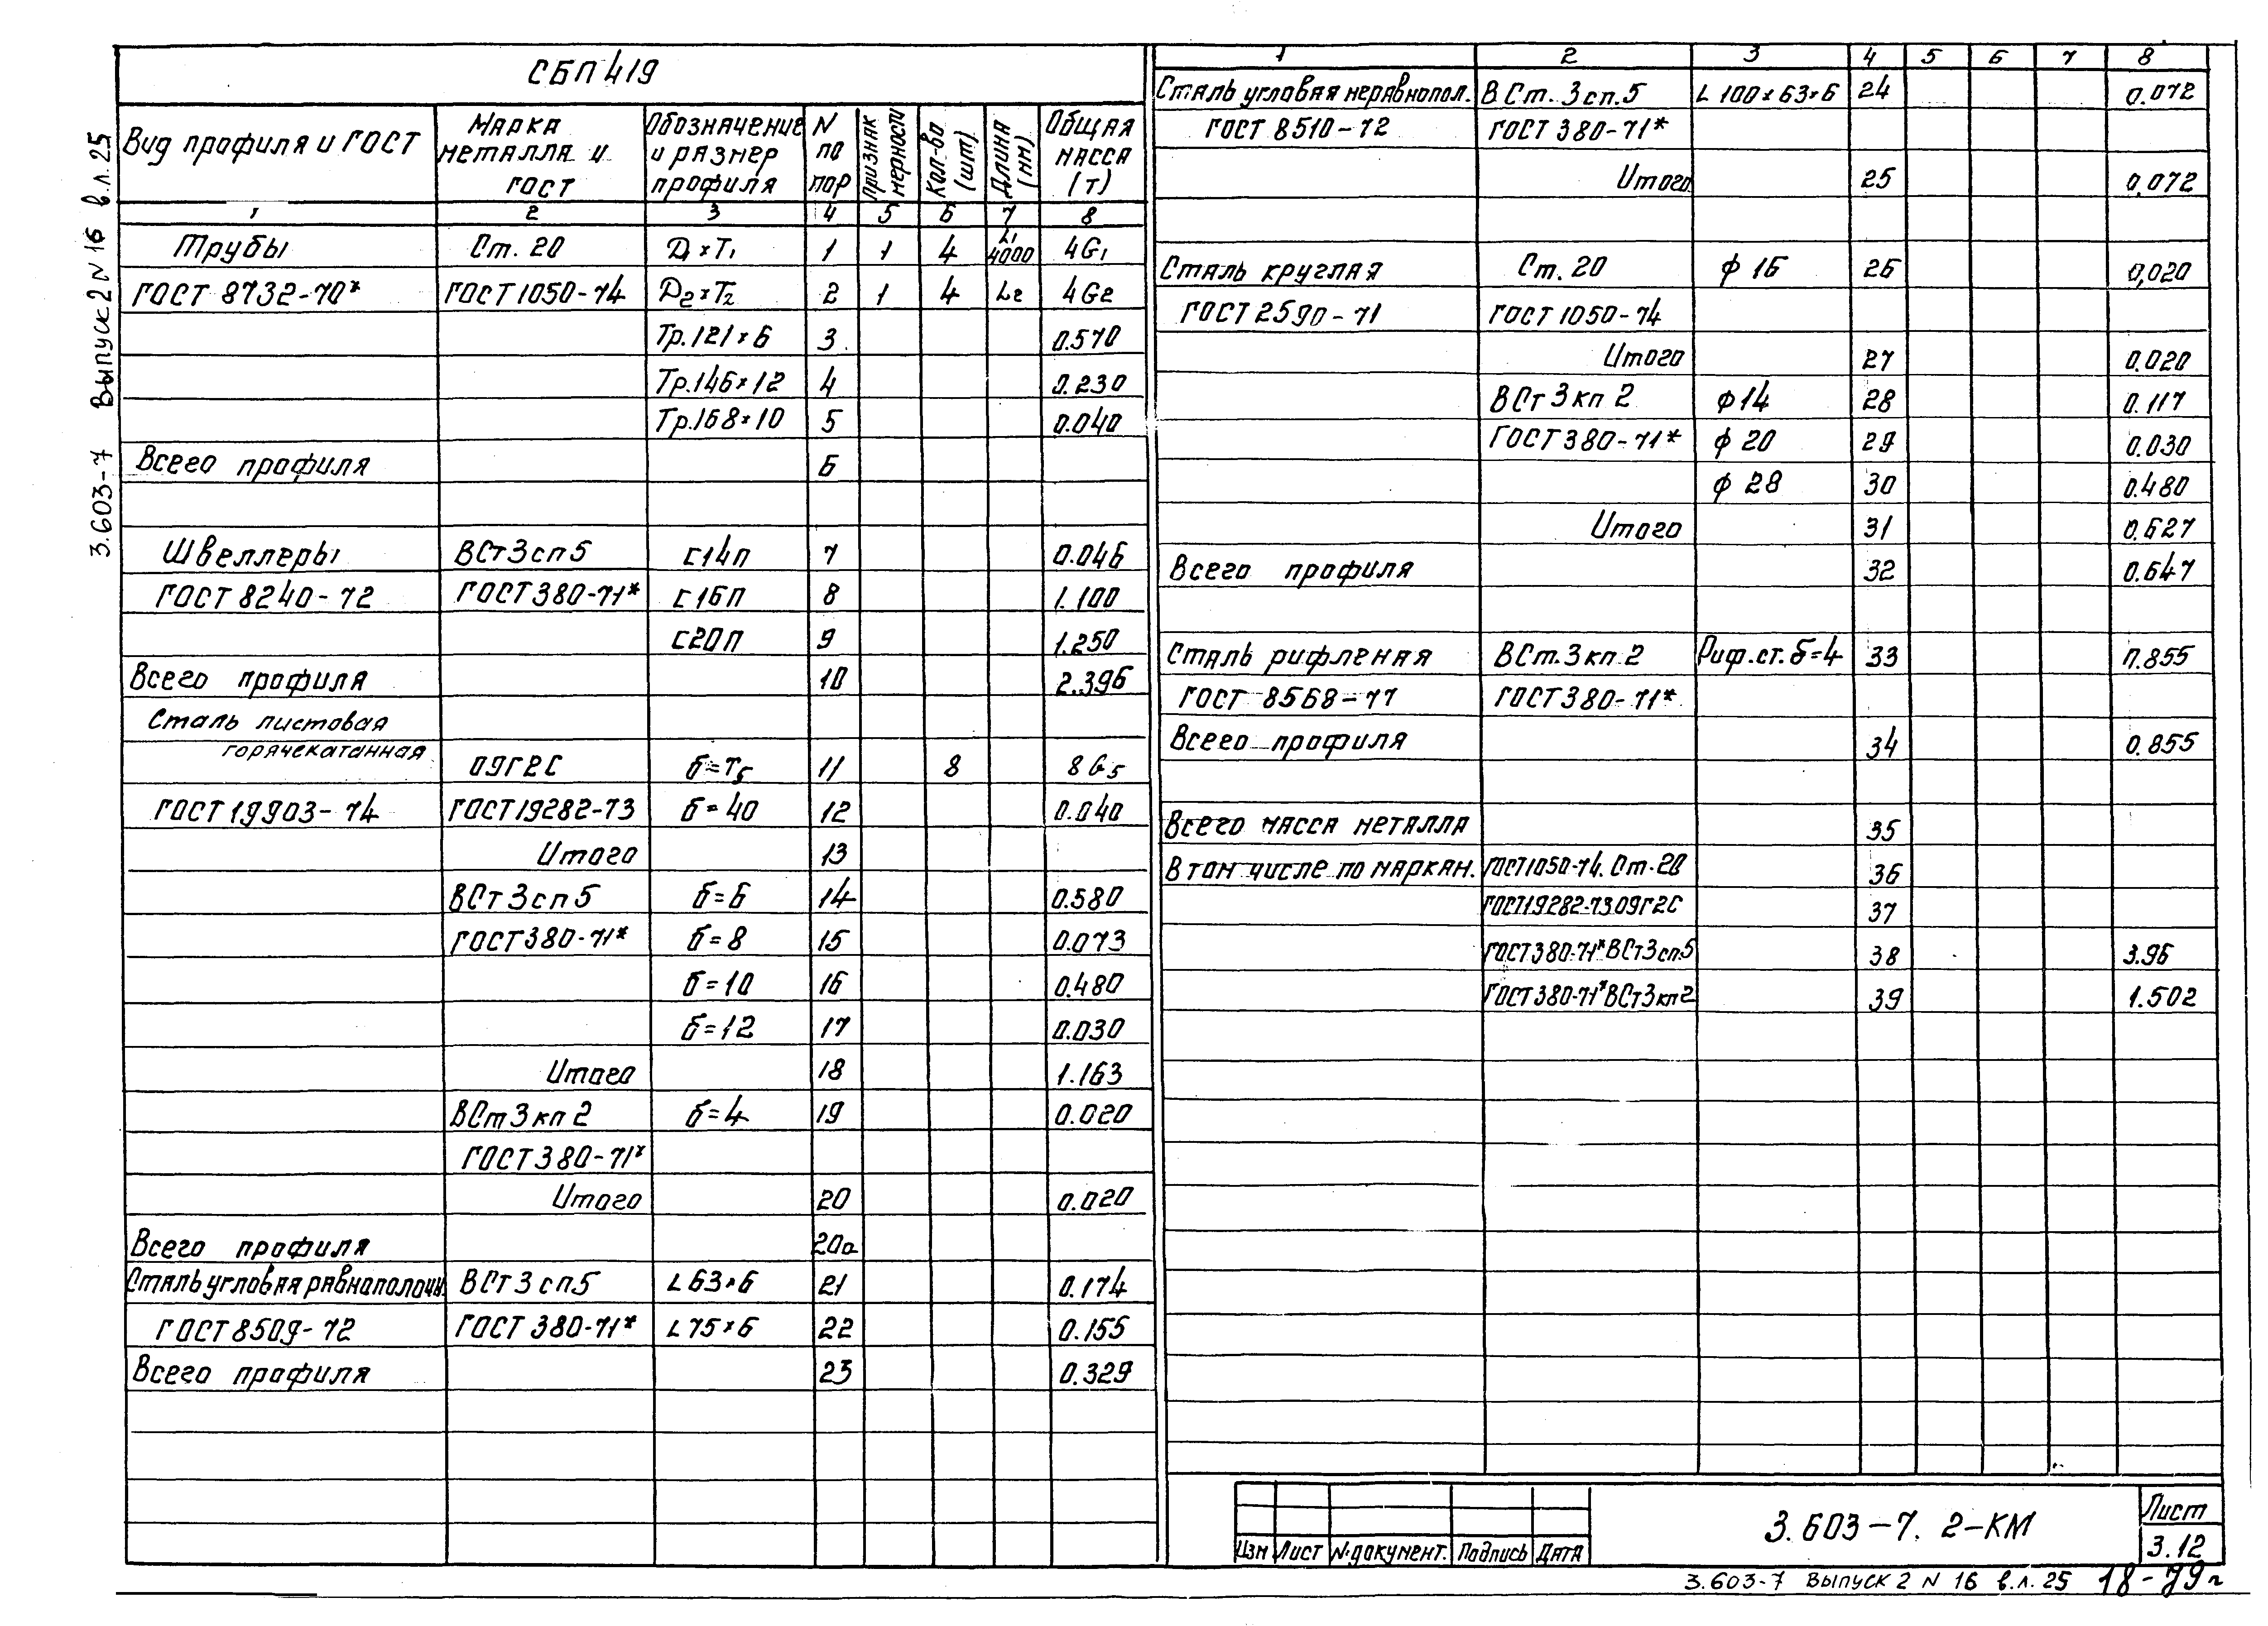 СБП 419
Вид профиля и ГОСТ | Марка металла и ГОСТ | Обозначение и размер профиля | N по пор | Признак мерности | Кол-во (шт) | Длина (мм) | Общая масса (т)
1 2 3 4 5 6 7 8
Трубы Ст. 20 D1×T1 1 1 4 L1 4000 4G1
ГОСТ 8732-70* ГОСТ 1050-74 D2×T2 2 1 4 L2 4G2
Тр.121×6 3 0.570
Тр.146×12 4 0.230
Тр.168×10 5 0.040
Всего профиля 6
Швеллеры ВСт3сп5 С14П 7 0.046
ГОСТ 8240-72 ГОСТ 380-71* С16П 8 1.100
С20П 9 1.250
Всего профиля 10 2.396
Сталь листовая
горячекатанная 09Г2С б=T5 11 8 8G5
ГОСТ 19903-74 ГОСТ 19282-73 б=40 12 0.040
Итого 13
ВСт3сп5 б=6 14 0.580
ГОСТ 380-71* б=8 15 0.073
б=10 16 0.480
б=12 17 0.030
Итого 18 1.163
ВСт3кп2 б=4 19 0.020
ГОСТ 380-71*
Итого 20 0.020
Всего профиля 20а
Сталь угловая равнополочн. ВСт3сп5 L63×6 21 0.174
ГОСТ 8509-72 ГОСТ 380-71* L75×6 22 0.155
Всего профиля 23 0.329
1 2 3 4 5 6 7 8
Сталь угловая неравнопол. ВСт.3сп.5 L 100×63×6 24 0.072
ГОСТ 8510-72 ГОСТ 380-71*
Итого 25 0,072
Сталь круглая Ст.20 ф 16 26 0,020
ГОСТ 2590-71 ГОСТ 1050-74
Итого 27 0.020
ВСт3кп2 ф14 28 0.117
ГОСТ 380-71* ф 20 29 0.030
ф 28 30 0.480
Итого 31 0.627
Всего профиля 32 0.647
Сталь рифленая ВСт.3кп.2 Риф.ст.б=4 33 0.855
ГОСТ 8568-77 ГОСТ 380-71*
Всего профиля 34 0.855
Всего масса металла 35
В том числе по маркам. ГОСТ1050-74. Ст.20 36
ГОСТ19282-73 09Г2С 37
ГОСТ380-71*ВСт3сп5 38 3.96
ГОСТ380-71*ВСт3кп2 39 1.502
Изм Лист N документ. Подпись Дата
3.603-7. 2-КМ
Лист
3.12
3.603-7 Выпуск 2 N 16 в.л. 25
18-79г
3.603-7 Выпуск 2 N 16 в.л. 25